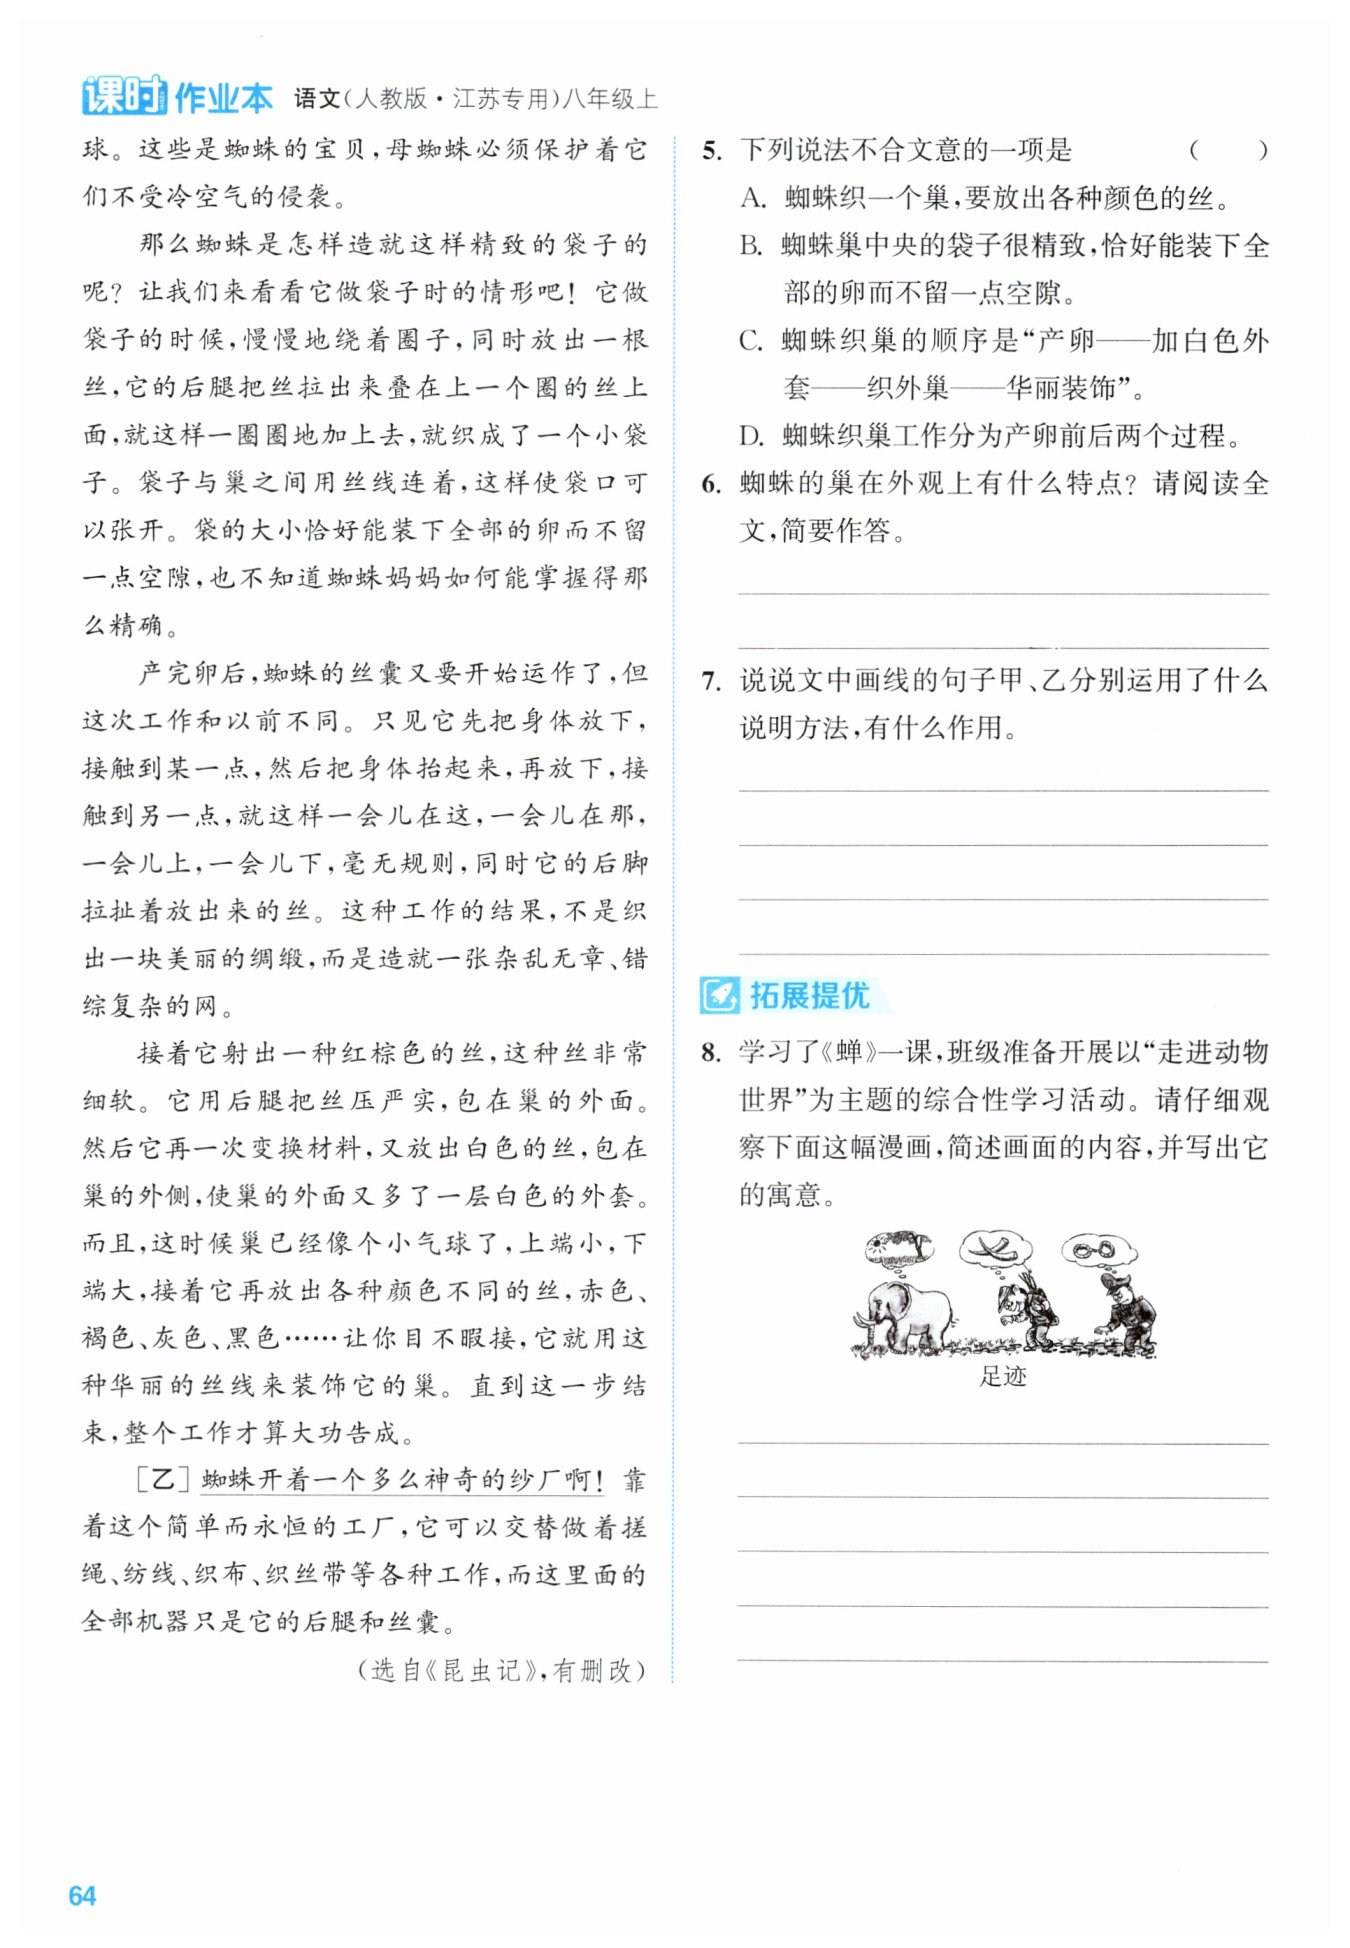 课时作业本 语文(人教版·江苏专用)八年级上
球。这些是蜘蛛的宝贝,母蜘蛛必须保护着它
们不受冷空气的侵袭。
那么蜘蛛是怎样造就这样精致的袋子的
呢?让我们来看看它做袋子时的情形吧!它做
袋子的时候,慢慢地绕着圈子,同时放出一根
丝,它的后腿把丝拉出来叠在上一个圈的丝上
面,就这样一圈圈地加上去,就织成了一个小袋
子。袋子与巢之间用丝线连着,这样使袋口可
以张开。袋的大小恰好能装下全部的卵而不留
一点空隙,也不知道蜘蛛妈妈如何能掌握得那
么精确。
产完卵后,蜘蛛的丝囊又要开始运作了,但
这次工作和以前不同。只见它先把身体放下,
接触到某一点,然后把身体抬起来,再放下,接
触到另一点,就这样一会儿在这,一会儿在那,
一会儿上,一会儿下,毫无规则,同时它的后脚
拉扯着放出来的丝。这种工作的结果,不是织
出一块美丽的绸缎,而是造就一张杂乱无章、错
综复杂的网。
接着它射出一种红棕色的丝,这种丝非常
细软。它用后腿把丝压严实,包在巢的外面。
然后它再一次变换材料,又放出白色的丝,包在
巢的外侧,使巢的外面又多了一层白色的外套。
而且,这时候巢已经像个小气球了,上端小,下
端大,接着它再放出各种颜色不同的丝,赤色、
褐色、灰色、黑色……让你目不暇接,它就用这
种华丽的丝线来装饰它的巢。直到这一步结
束,整个工作才算大功告成。
[乙]蜘蛛开着一个多么神奇的纱厂啊!靠
着这个简单而永恒的工厂,它可以交替做着搓
绳、纺线、织布、织丝带等各种工作,而这里面的
全部机器只是它的后腿和丝囊。
(选自《昆虫记》,有删改)
5. 下列说法不合文意的一项是 ( )
A. 蜘蛛织一个巢,要放出各种颜色的丝。
B. 蜘蛛巢中央的袋子很精致,恰好能装下全
部的卵而不留一点空隙。
C. 蜘蛛织巢的顺序是“产卵——加白色外
套——织外巢——华丽装饰”。
D. 蜘蛛织巢工作分为产卵前后两个过程。
6. 蜘蛛的巢在外观上有什么特点?请阅读全
文,简要作答。
7. 说说文中画线的句子甲、乙分别运用了什么
说明方法,有什么作用。
拓展提优
8. 学习了《蝉》一课,班级准备开展以“走进动物
世界”为主题的综合性学习活动。请仔细观
察下面这幅漫画,简述画面的内容,并写出它
的寓意。
足迹
64